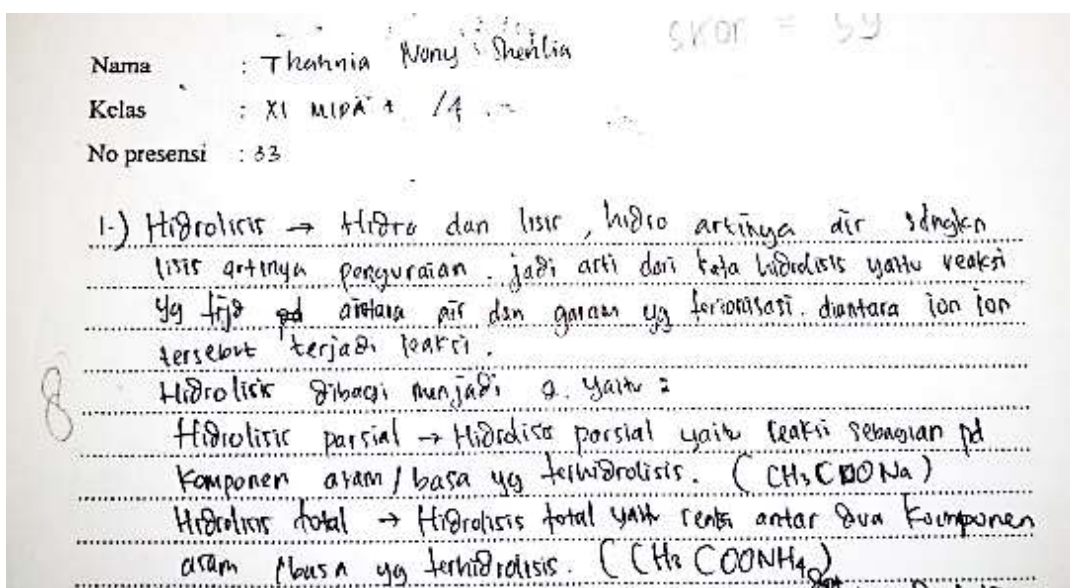 skor = 59
Nama : Thahnia Nony Sherlia
Kelas : XI MIPA 4 /4
No presensi : 33
1.) Hidrolisis → Hidro dan lisis, hidro artinya air sdngkn
lisis artinya penguraian. jadi arti dari kata hidrolisis yaitu reaksi
yg trjd antara air dan garam yg terionisasi. diantara ion ion
tersebut terjadi reaksi.
8
Hidrolisis dibagi menjadi 2. yaitu :
Hidrolisis parsial → Hidrolisis parsial yaitu reaksi sebagian pd
komponen asam / basa yg terhidrolisis. (CH3COONa)
Hidrolisis total → Hidrolisis total yaitu reaksi antar dua komponen
asam /basa yg terhidrolisis. (CH3COONH4)